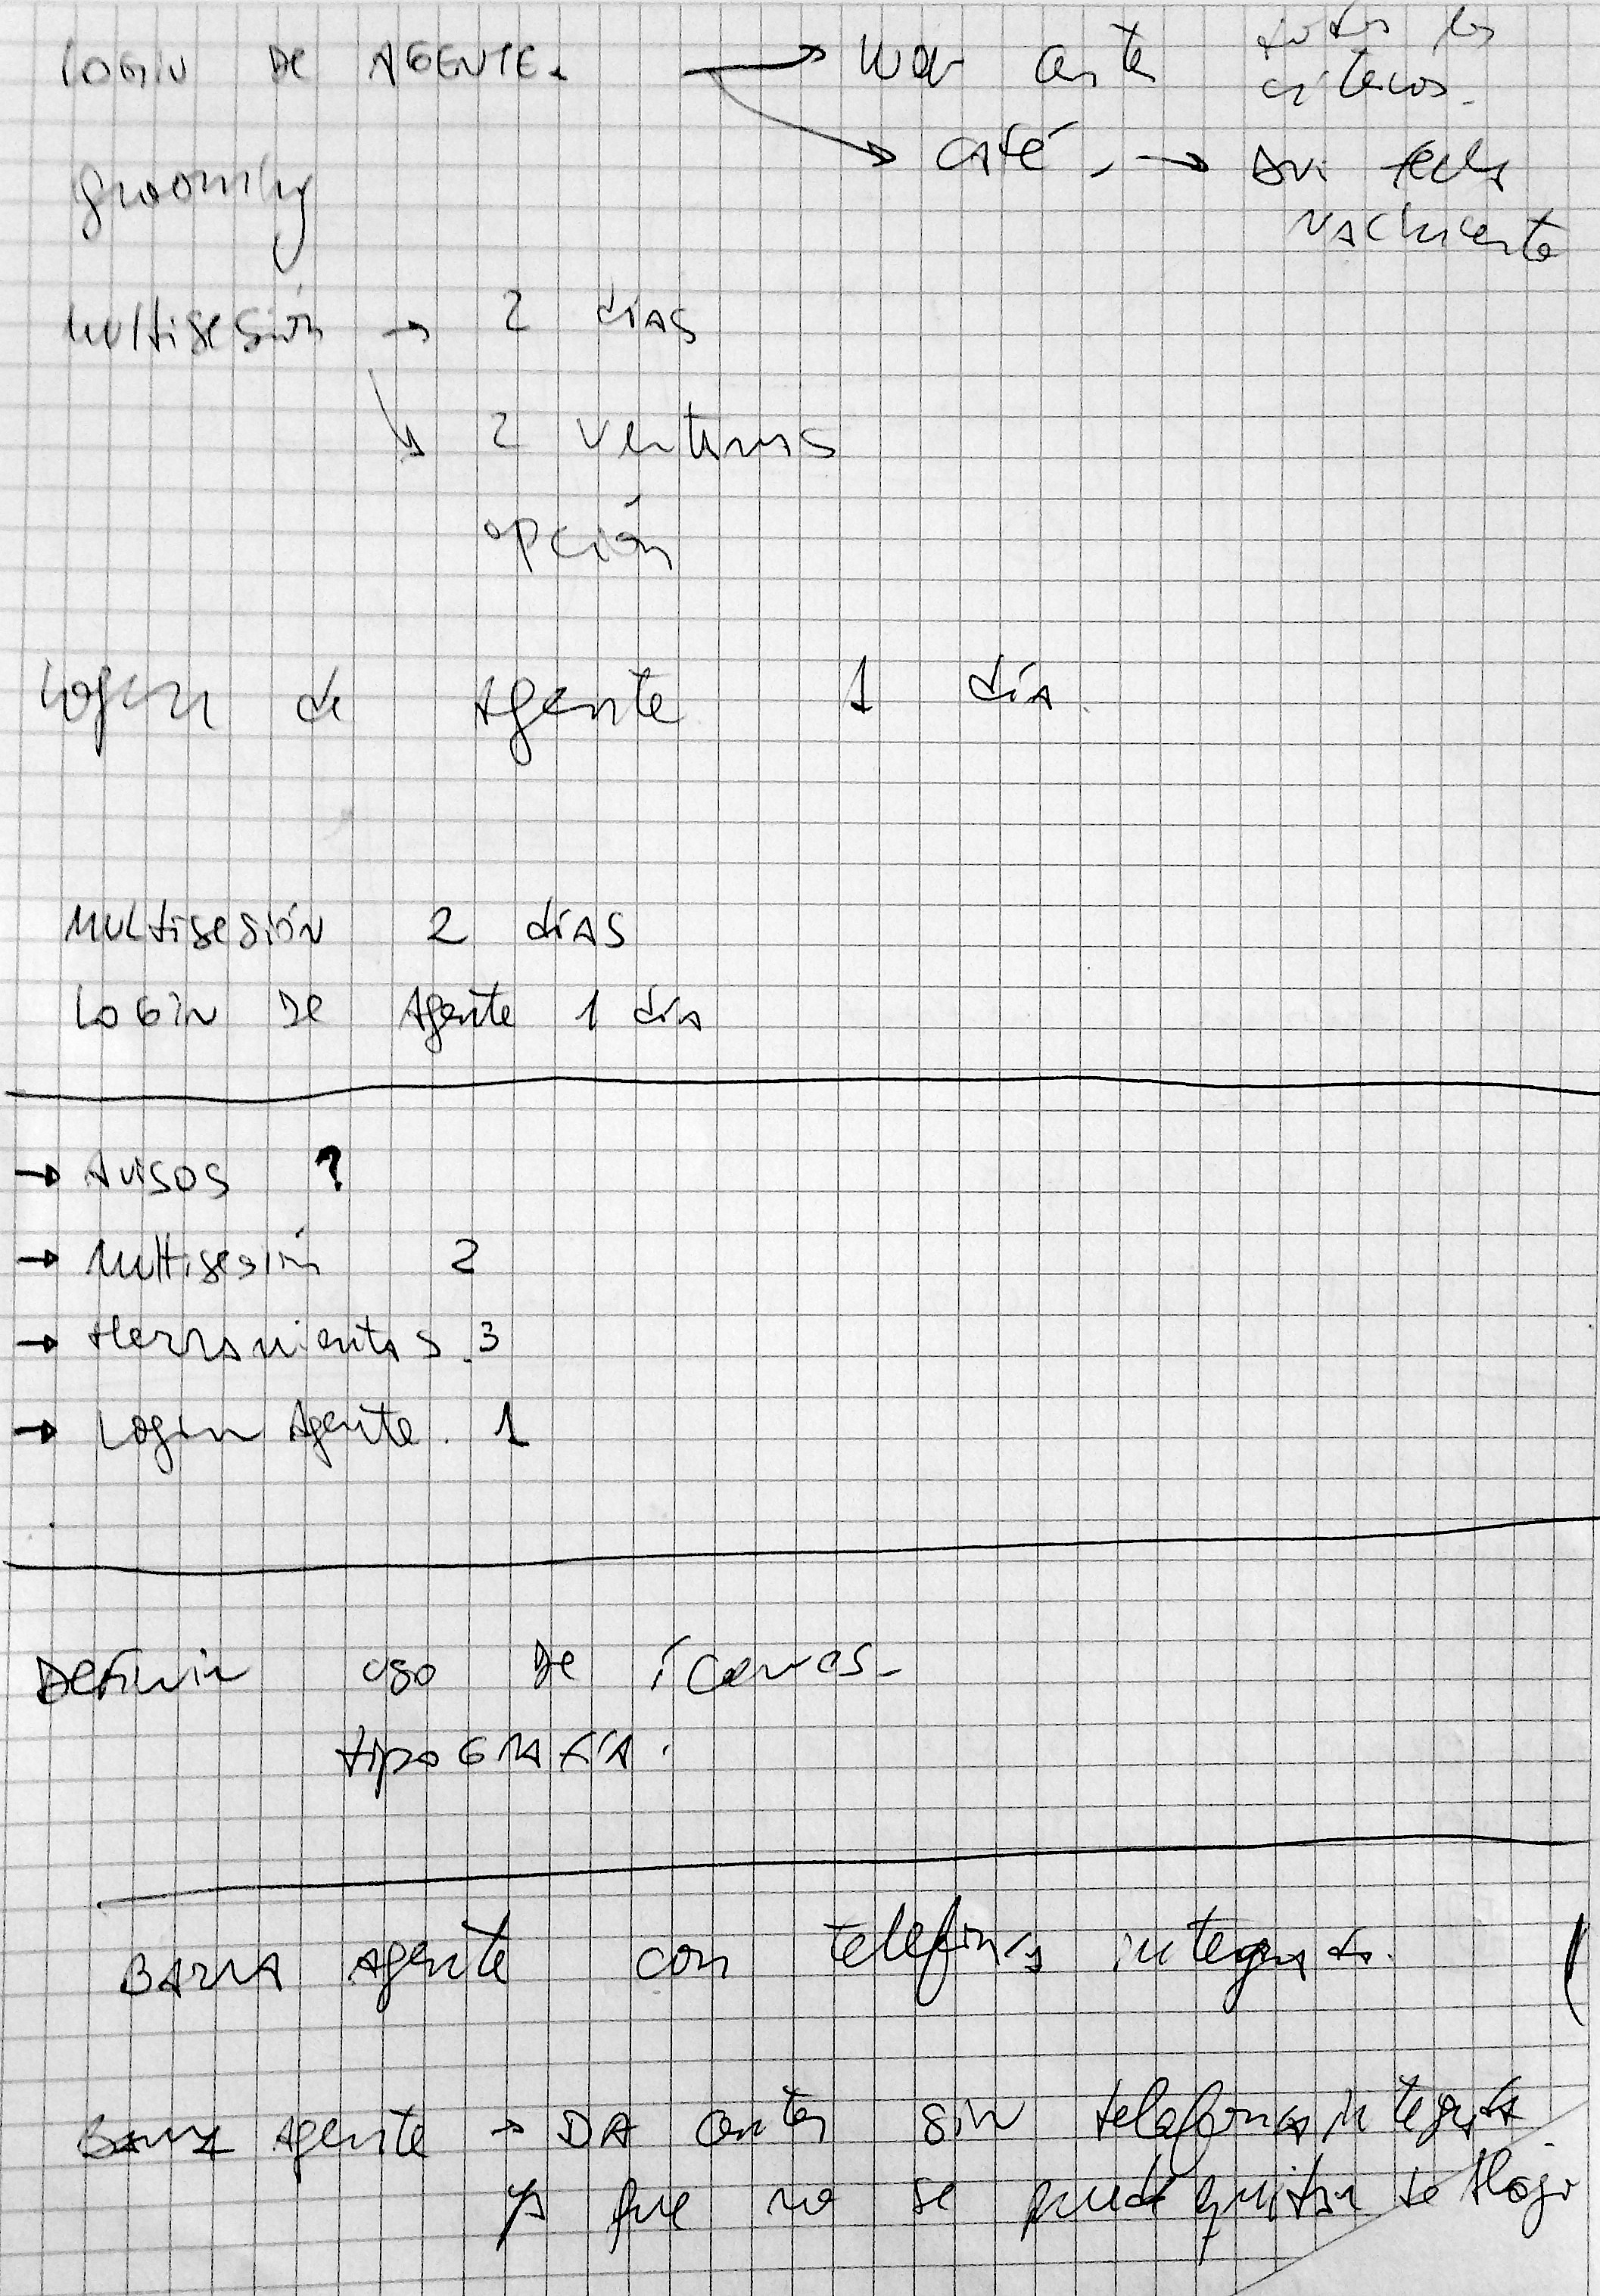 LOGIN DE AGENTE. → todos los
criterios.
→ CAFÉ, → DNI fecha
nacimiento
grooming
Multisesión → 2 días
2 ventanas
opción
Login de Agente 1 día.
Multisesión 2 días
LOGIN DE Agente 1 día
→ AVISOS ?
→ Multisesión 2
→ Herramientas. 3
→ Login Agente. 1
Definir uso de íconos-
tipografía.
BARRA Agente con telefonía integrada.
Barra Agente → DA sin telefonía integrada
ya que no se puede quitar